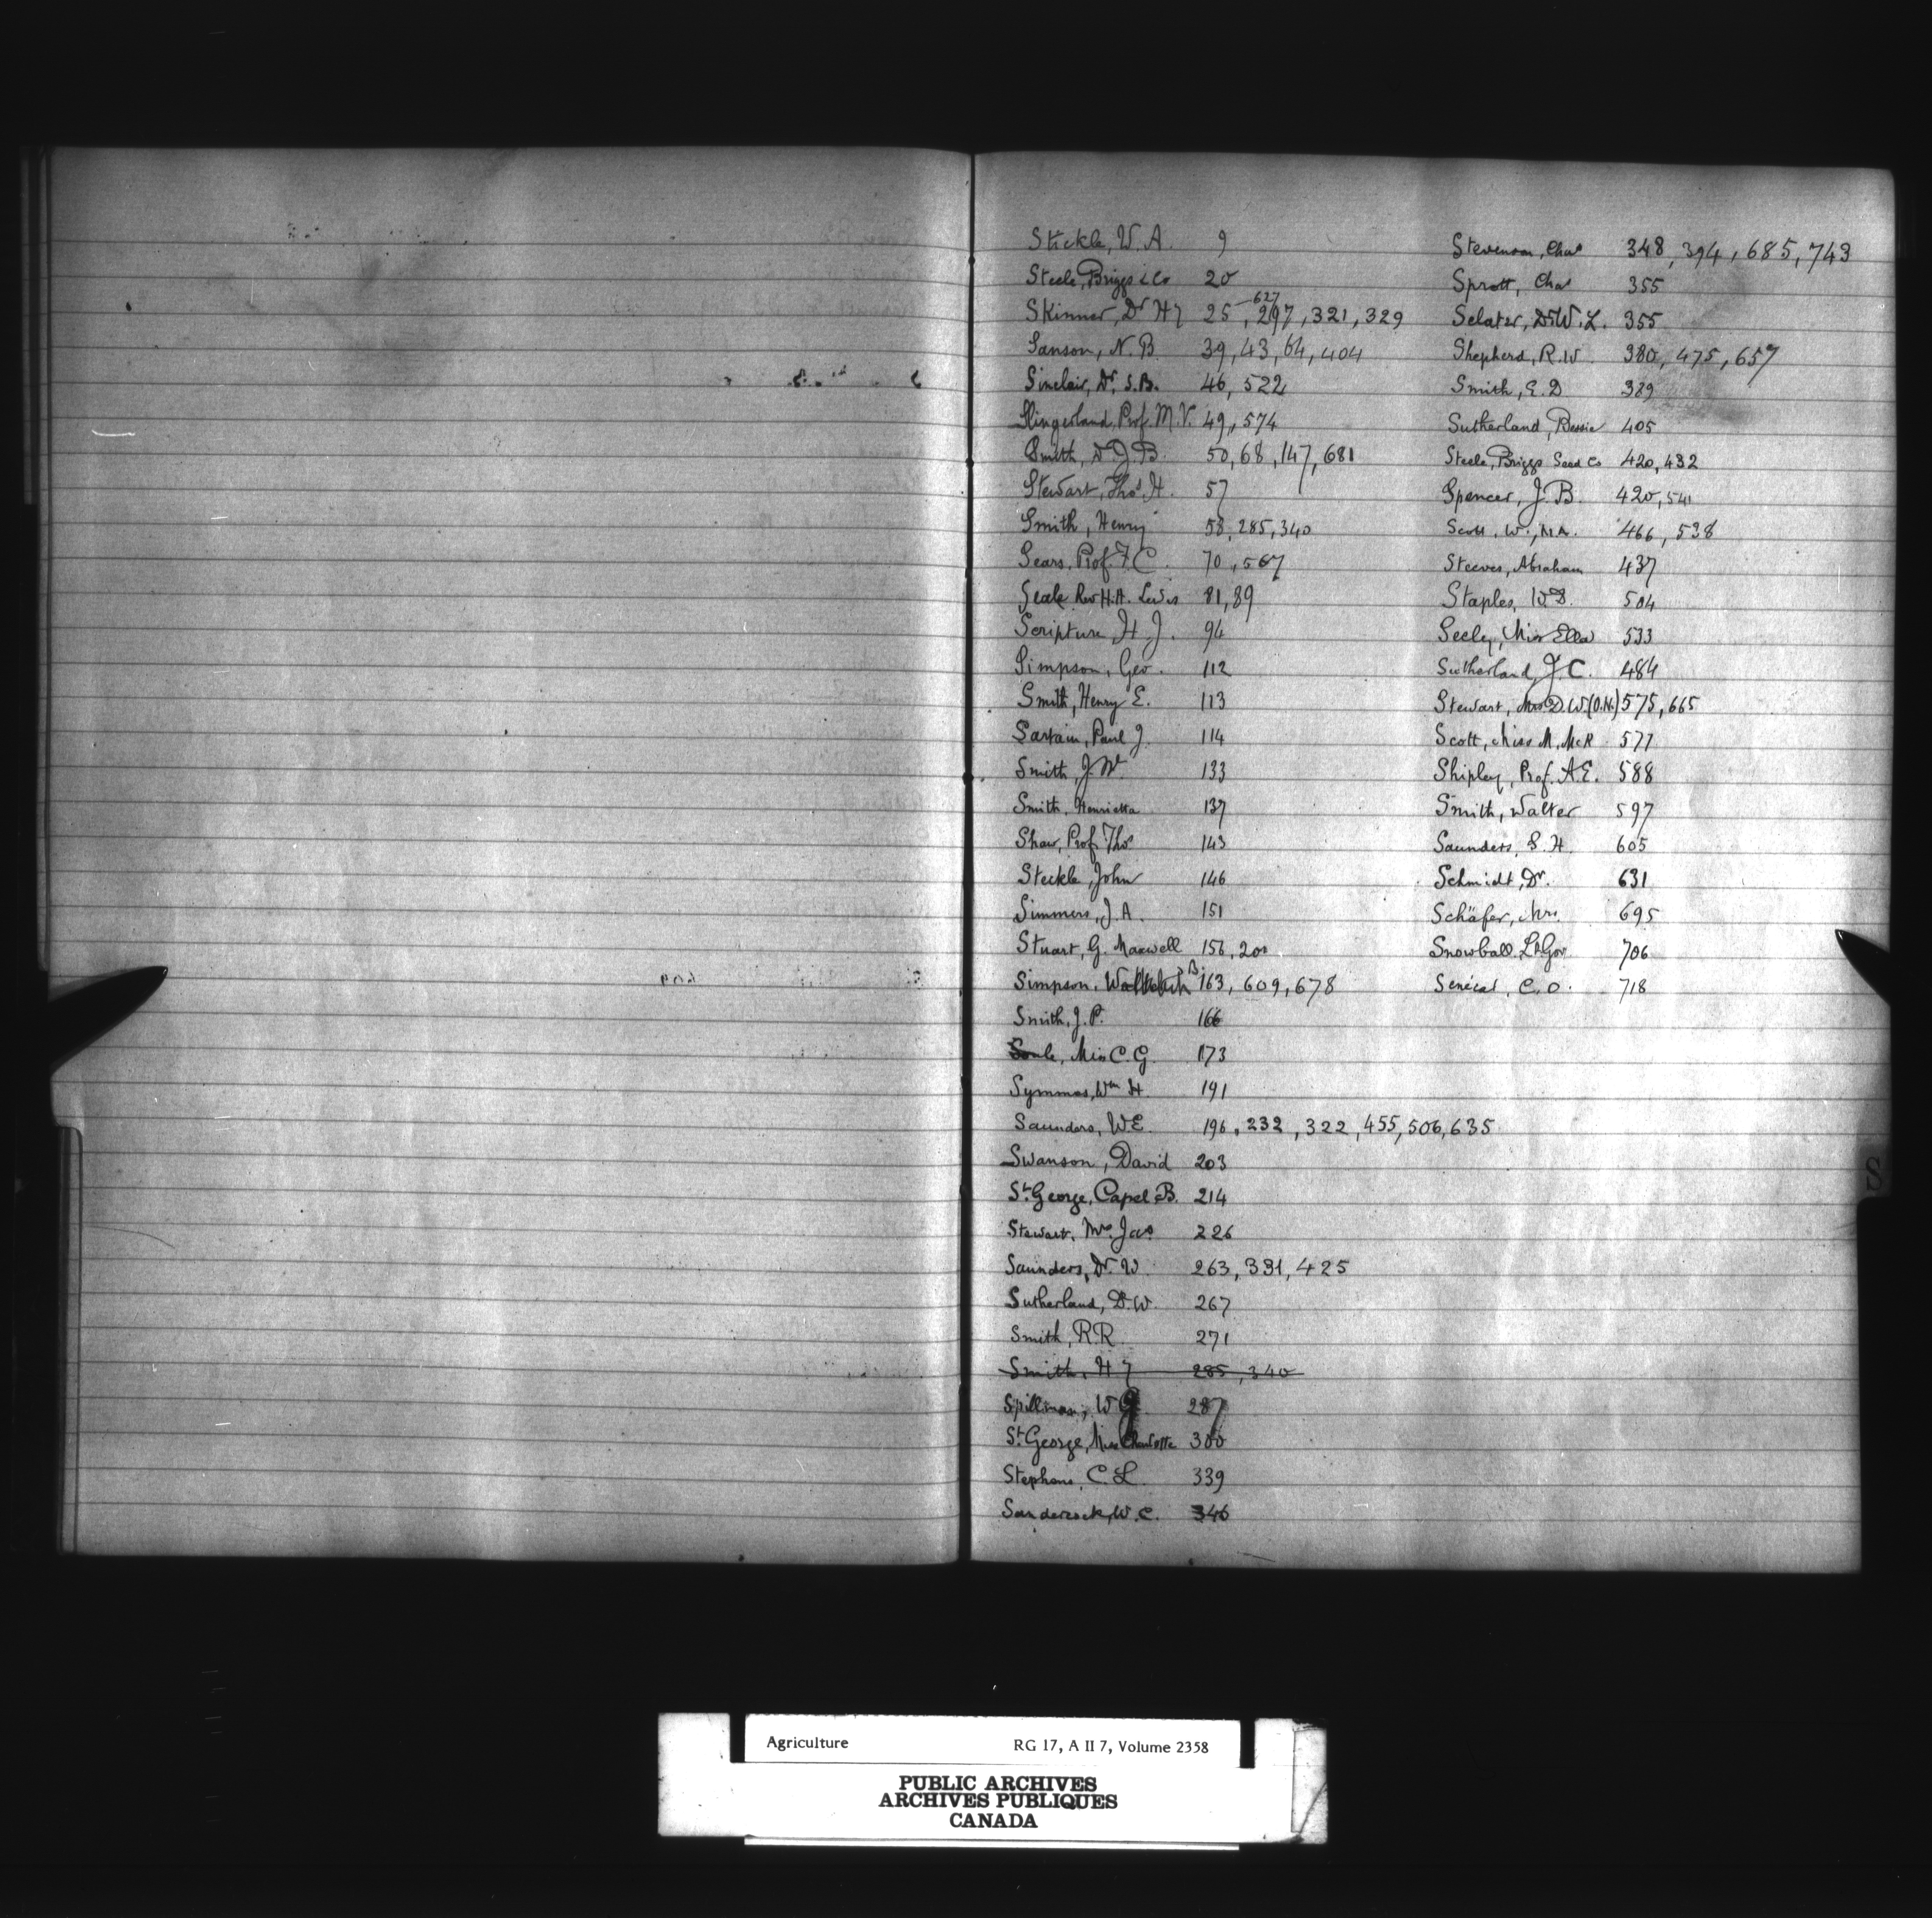 Stickle, W. A. 9
Steele, Briggs & Co 20
Skinner, Dr Hy 25, 297, 321, 329
627
Sanson, N. B. 39, 43, 64, 404
Sinclair, Dr. S. B. 46, 522
Slingerland, Prof. M. V. 49, 574
Smith, Dr J. B. 50, 68, 147, 681
Stewart, Thos. H. 57
Smith, Henry 58, 285, 340
Sears, Prof. F. C. 70, 567
Seale Rev H. A. Lewis 81, 89
Scripture H. J. 94
Simpson, Geo. 112
Smith, Henry E. 113
Sartain, Paul J. 114
Smith, J. W. 133
Smith, Henrietta 137
Shaw, Prof Thos 143
Steckle, John 146
Simmers, J. A. 151
Stuart, G. Maxwell 156, 200
Simpson, B. 163, 609, 678
Smith, J. P. 166
Soule, Miss C. G. 173
Symmes, Wm H. 191
Saunders, W E. 196, 232, 322, 455, 506, 635
Swanson, David 203
St. George, Capel B. 214
Stewart, Mrs Jas 226
Saunders, Dr. W. 263, 331, 425
Sutherland, D. W. 267
Smith, R. R. 271
Smith, Hy 285, 340
Spillman, W. J. 287
St George, Miss Charlotte 300
Stephens, C. L. 339
Sandercock, W. C. 346
Stevenson, Chas 348, 394, 685, 743
Sprott, Chas 355
Sclater, Dr W. L. 355
Shepherd, R. W. 380, 475, 657
Smith, E. D 389
Sutherland, Bessie 405
Steele, Briggs Seed Co 420, 432
Spencer, J. B. 420, 541
Scott, W., M.A. 466, 538
Steeves, Abraham 437
Staples, W. D. 504
Seely, Miss Ella 533
Sutherland, J. C. 484
Stewart, Mrs. D. W. (O.N.) 575, 665
Scott, Miss M. McR 577
Shipley, Prof. A. E. 588
Smith, Walter 597
Saunders, S. H. 605
Schmidt, Dr. 631
Schäfer, Mrs. 695
Snowball Lt Gov 706
Senécal, C. O. 718
S
Agriculture RG 17, A II 7, Volume 2358
PUBLIC ARCHIVES
ARCHIVES PUBLIQUES
CANADA